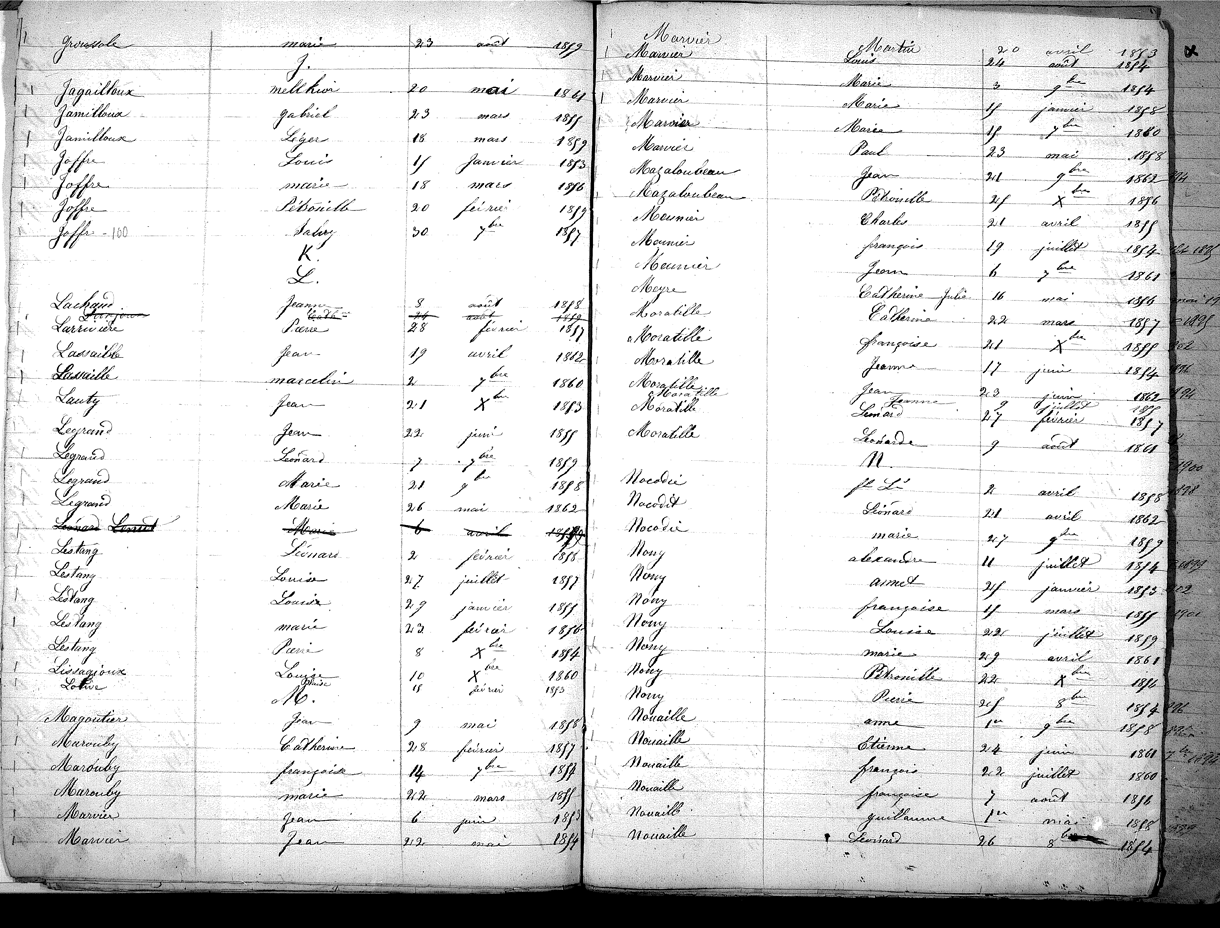 Groussole marie 23 août 1859
J.
Jagailloux melchior 20 mai 1861
Jamilloux gabriel 23 mars 1855
Jamilloux Léger 18 mars 1859
Joffre Louis 15 Janvier 1853
Joffre marie 18 mars 1856
Joffre Pétronille 20 février 1859
Joffre - 100 30 7bre 1857
K.
L.
Lachaud Jeanne 8 août 1858
Cath 24 août 1859
Larrivière Pierre 28 février 1857
Lassaille Jean 19 avril 1862
Lassaille marcelin 2 7bre 1860
Lauty Jean 21 Xbre 1853
Legrand Jean 22 juin 1855
Legrand Léonard 7 7bre 1859
Legrand Marie 21 9bre 1858
Legrand Marie 26 mai 1862
Léonard Marie 6 avril
Lestang Léonard 2 février 1858
Lestang Louise 27 juillet 1857
Lestang Louise 29 janvier 1855
Lestang marie 23 février 1856
Lestang Pierre 8 Xbre 1854
Lissagioux Louise 10 Xbre 1860
Louise 15 février 1853
M.
Magoutier Jean 9 mai 1858
Marouby Catherine 28 février 1857
Marouby françoise 14 7bre 1857
Marouby marie 22 mars 1855
Marvier Jean 6 juin 1853
Marvier Jean 22 mai 1854
Marvier Martin 20 avril 1853
Marvier Louis 24 août 1854
Marvier Marie 3 9bre 1854
Marvier Marie 15 janvier 1858
Marvier Marie 15 7bre 1860
Marvier Paul 23 mai 1858
Mazaloubeau Jean 21 9bre 1862
Mazaloubeau Pétronille 25 Xbre 1856
Meunier Charles 21 avril 1855
Meunier françois 19 juillet 1854
Meunier Jean 6 7bre 1861
Meyre Catherine Julie 16 mai 1856
Moratille Catherine 22 mars 1857
Moratille françoise 21 Xbre 1855
Moratille Jeanne 17 juin 1854
Moratille Jean 23 juin 1862
Moratille Jeanne 9 juillet
Moratille Léonard 27 février 1857
Moratille Léonarde 9 août 1861
N.
Nocodie 2 avril 1858
Nocodie Léonard 21 avril 1862
Nocodie marie 27 9bre 1859
Nony alexandre 11 juillet 1854
Nony annet 25 janvier 1853
Nony françoise 15 mars 1855
Nony Louise 22 juillet 1859
Nony marie 29 avril 1861
Nony Pétronille 22 Xbre 1856
Nony Pierre 25 8bre 1854
Nouaille anne 1er 9bre 1858
Nouaille Etienne 24 juin 1861
Nouaille françois 22 juillet 1860
Nouaille françoise 7 août 1856
Nouaille guillaume 1er mai 1858
Nouaille Léonard 26 8bre 1854